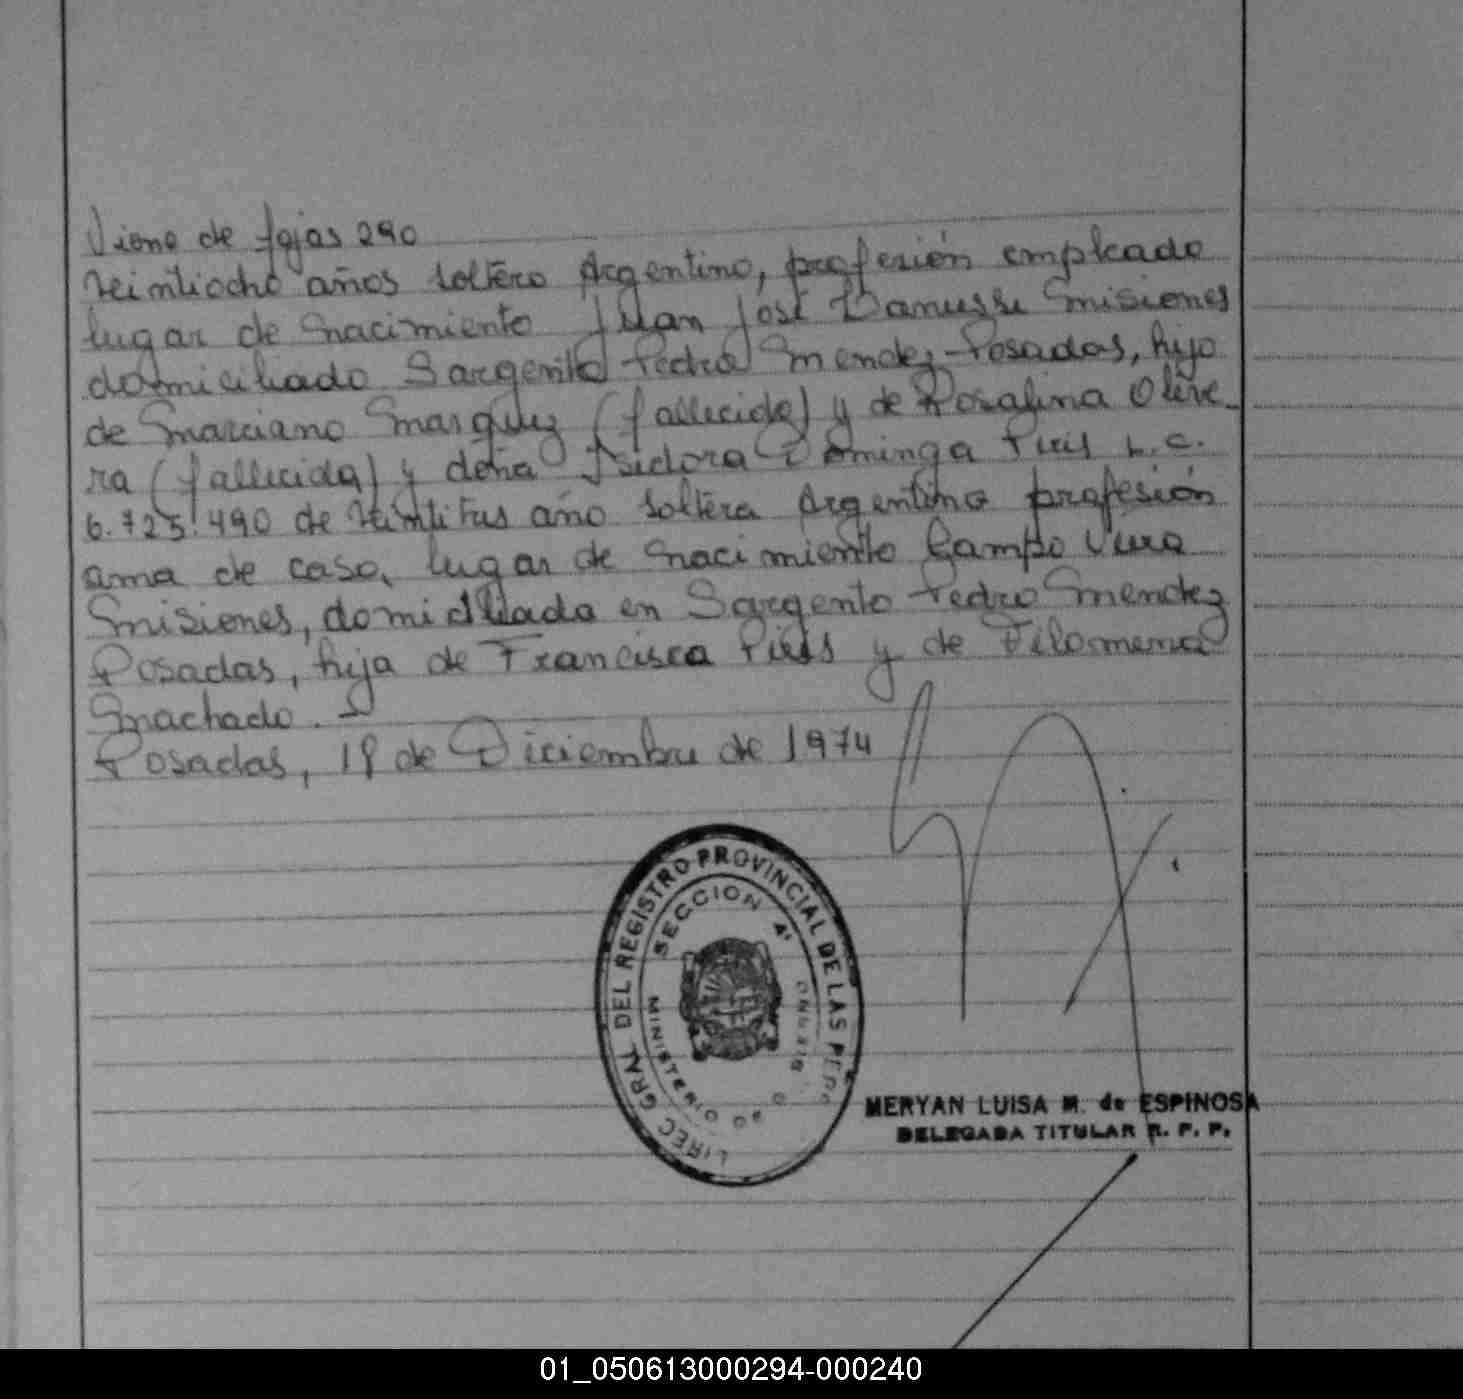 Viene de fojas 290
veintiocho años soltero Argentino, profesión empleado
lugar de nacimiento Juan José Lanusse Misiones
domiciliado Sargento Pedro Mendez Posadas, hijo
de Marciano Marquez (fallecido) y de Rosalina Olive-
ra (fallecida) y doña Isidora Dominga Piris L.C.
6.725.490 de veintitres año soltera Argentina profesión
ama de casa, lugar de nacimiento Campo Viera
Misiones, domiciliada en Sargento Pedro Mendez
Posadas, hija de Francisca Piris y de Filomena
Machado.
Posadas, 19 de Diciembre de 1974
DIREC GRAL DEL REGISTRO PROVINCIAL DE LAS PERS
SECCION 4ª
MINISTERIO DE GOBIERNO
MERYAN LUISA M. de ESPINOSA
DELEGADA TITULAR R. P. P.
01_050613000294-000240